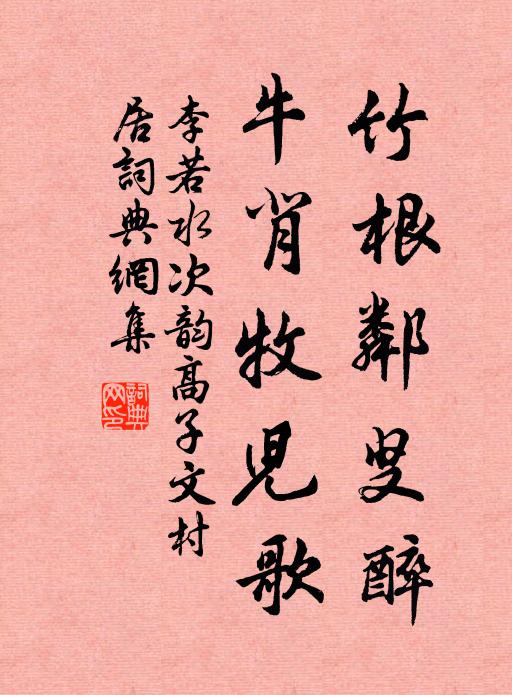 竹根鄰叟醉
牛背牧児歌
李若水次韵高子文村
居詞典網集
詞典
网印